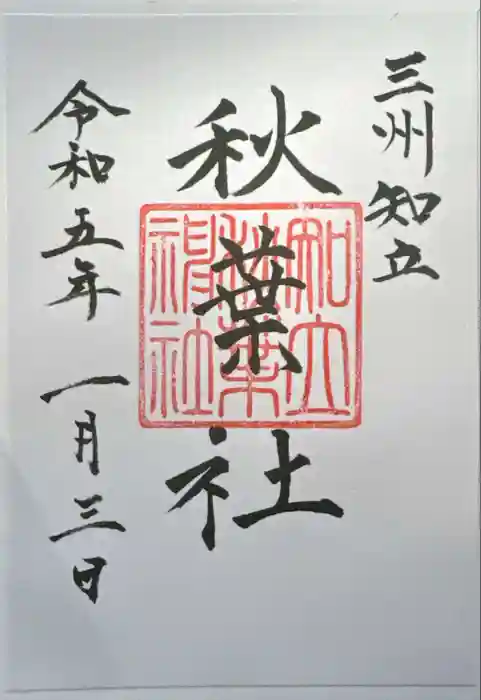 三州知立
秋葉社
知立秋葉神社
令和五年一月三日